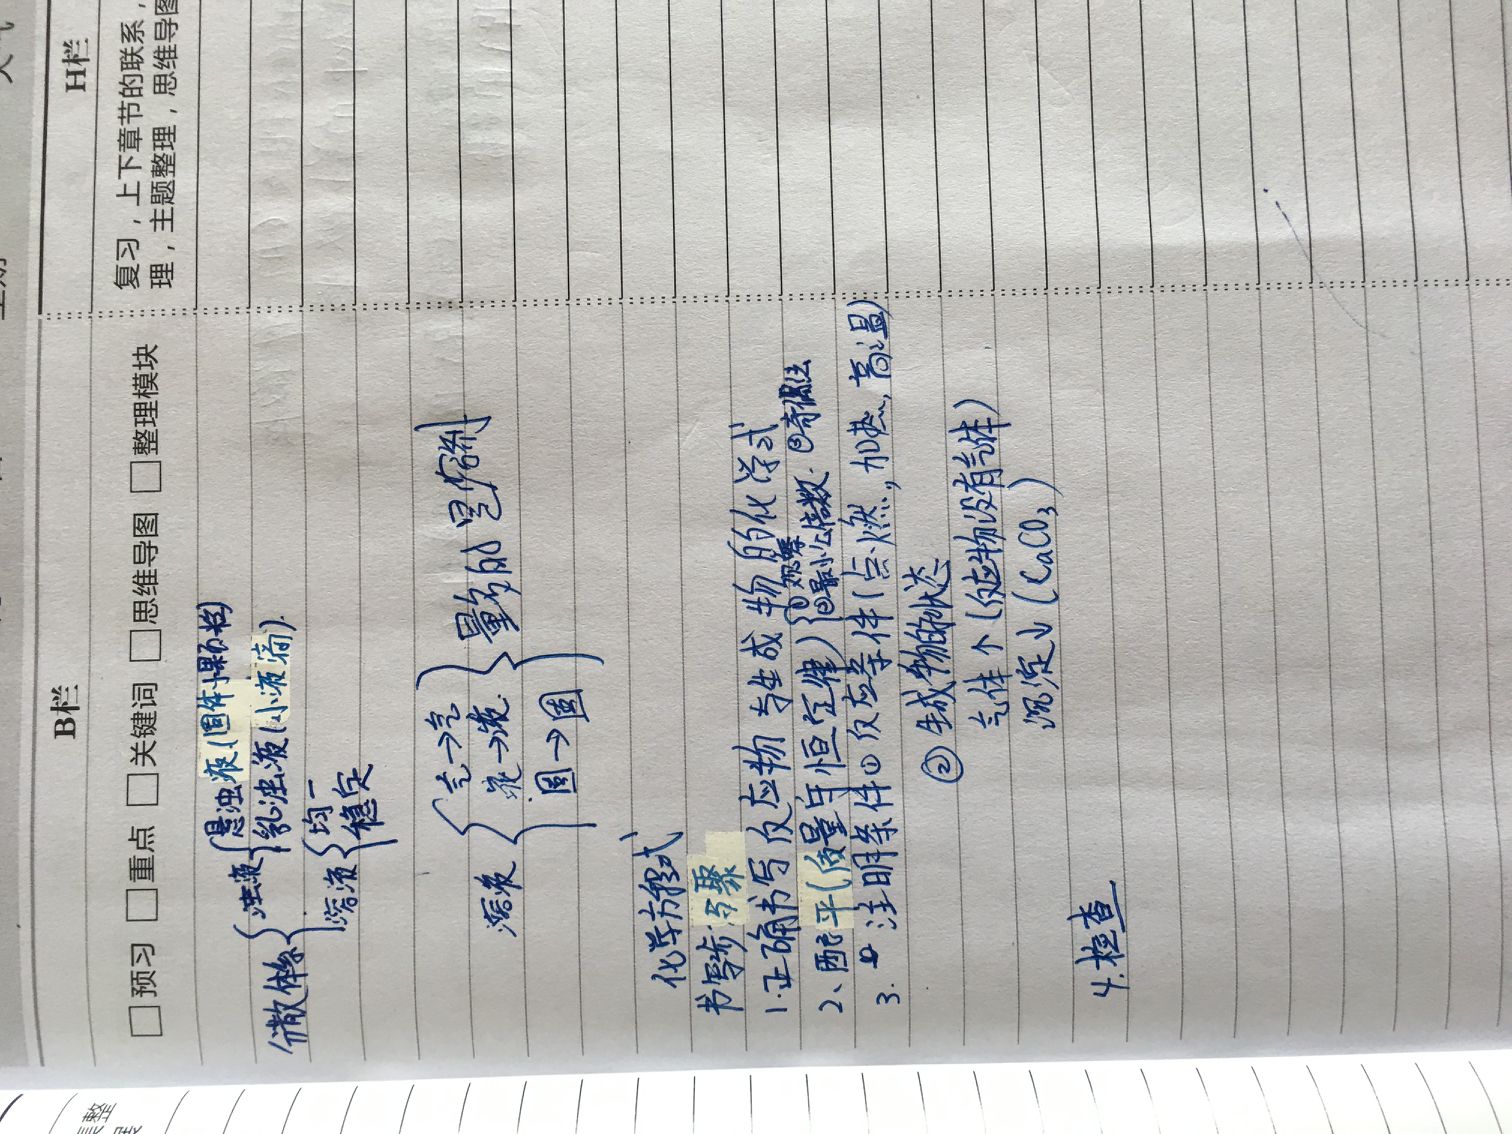 B栏
H栏
□预习 □重点 □关键词 □思维导图 □整理模块
复习，上下章节的联系，
理，主题整理，思维导图
分散体系{浊液{悬浊液(固体小颗粒)
乳浊液(小液滴).
溶液{均一
稳定
溶液{气→气
液→液
固→固
}量多的是溶剂
化学方程式
书写步步聚
1.正确书写反应物与生成物的化学式
2、配平(质量守恒定律){①观察
②最小公倍数.③奇偶法
3. 注明条件①反应条件(点燃,加热,高温)
②生成物的状态
气体↑(反应物没有气体)
沉淀↓(CaCO₃)
4.检查